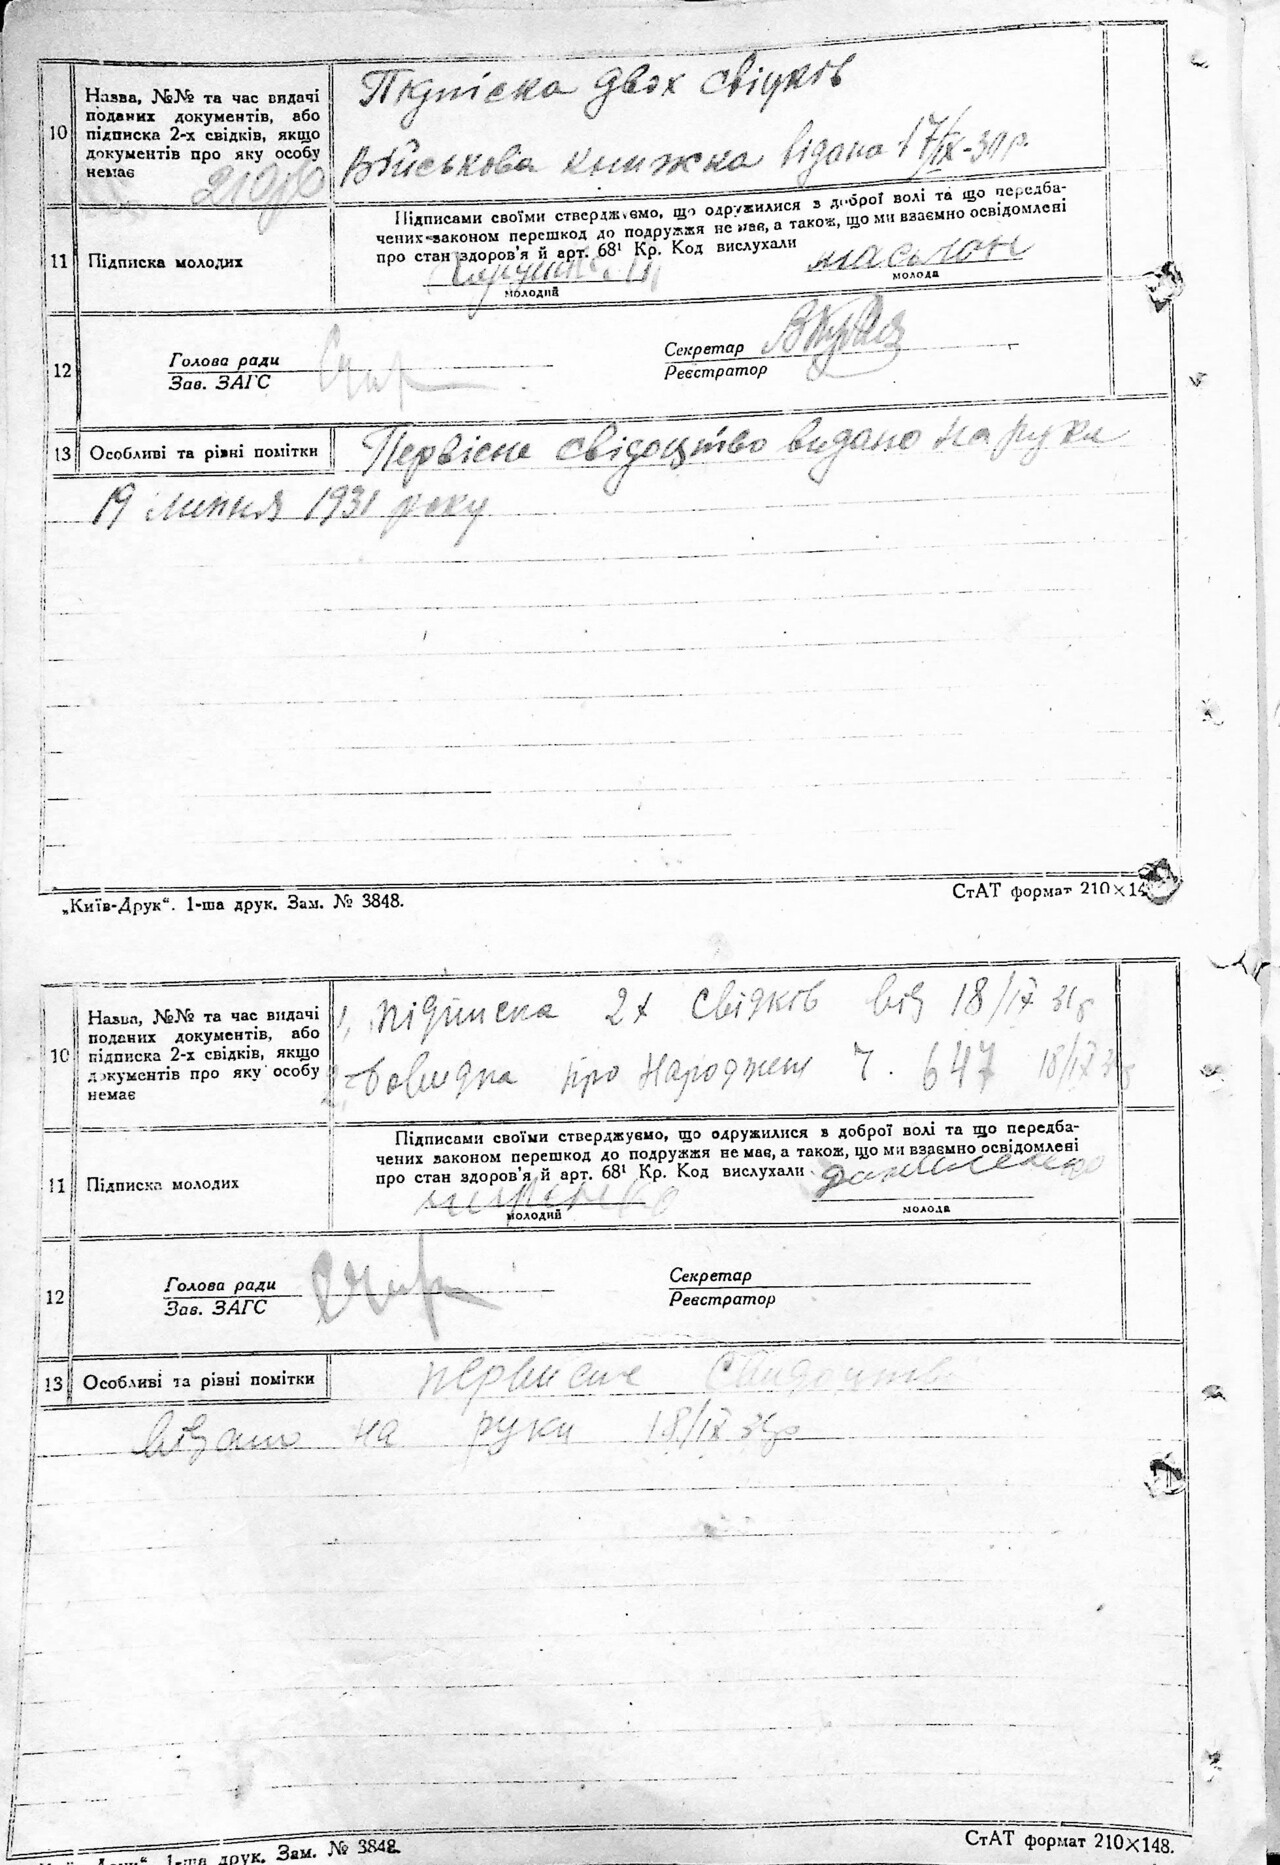 10
Назва, №№ та час видачі
поданих документів, або
підписка 2-х свідків, якщо
документів про яку особу
немає
Підписка двох свідків
Військова книжка видана 17/IX-30 р.
11
Підписка молодих
Підписами своїми стверджуємо, що одружилися з доброї волі та що передба-
чених законом перешкод до подружжя не має, а також, що ми взаємно освідомлені
про стан здоров'я й арт. 68¹ Кр. Код вислухали
молодий
молода
12
Голова ради
Зав. ЗАГС
Секретар
Реєстратор
13
Особливі та рівні помітки
Первісне свідоцтво видано на руки
19 липня 1931 року
„Київ-Друк“. 1-ша друк. Зам. № 3848.
СтАТ формат 210×14
10
Назва, №№ та час видачі
поданих документів, або
підписка 2-х свідків, якщо
документів про яку особу
немає
1, підписка 2х свідків від 18/IX 31р
про народжен ч. 647 18/IX 31р
11
Підписка молодих
Підписами своїми стверджуємо, що одружилися в доброї волі та що передба-
чених законом перешкод до подружжя не має, а також, що ми взаємно освідомлені
про стан здоров'я й арт. 68¹ Кр. Код вислухали
молодий
молода
12
Голова ради
Зав. ЗАГС
Секретар
Реєстратор
13
Особливі та рівні помітки
первисне
видано на руки 18/IX 31р
1-ша друк. Зам. № 3848.
СтАТ формат 210×148.